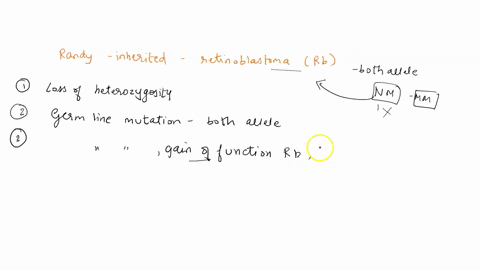 Randy - inherited - retinoblastoma (Rb)
- both allele
① Loss of heterozygosity
NM - MM
1 X
② Germ line mutation - both allele
③ " " , gain of function Rb,